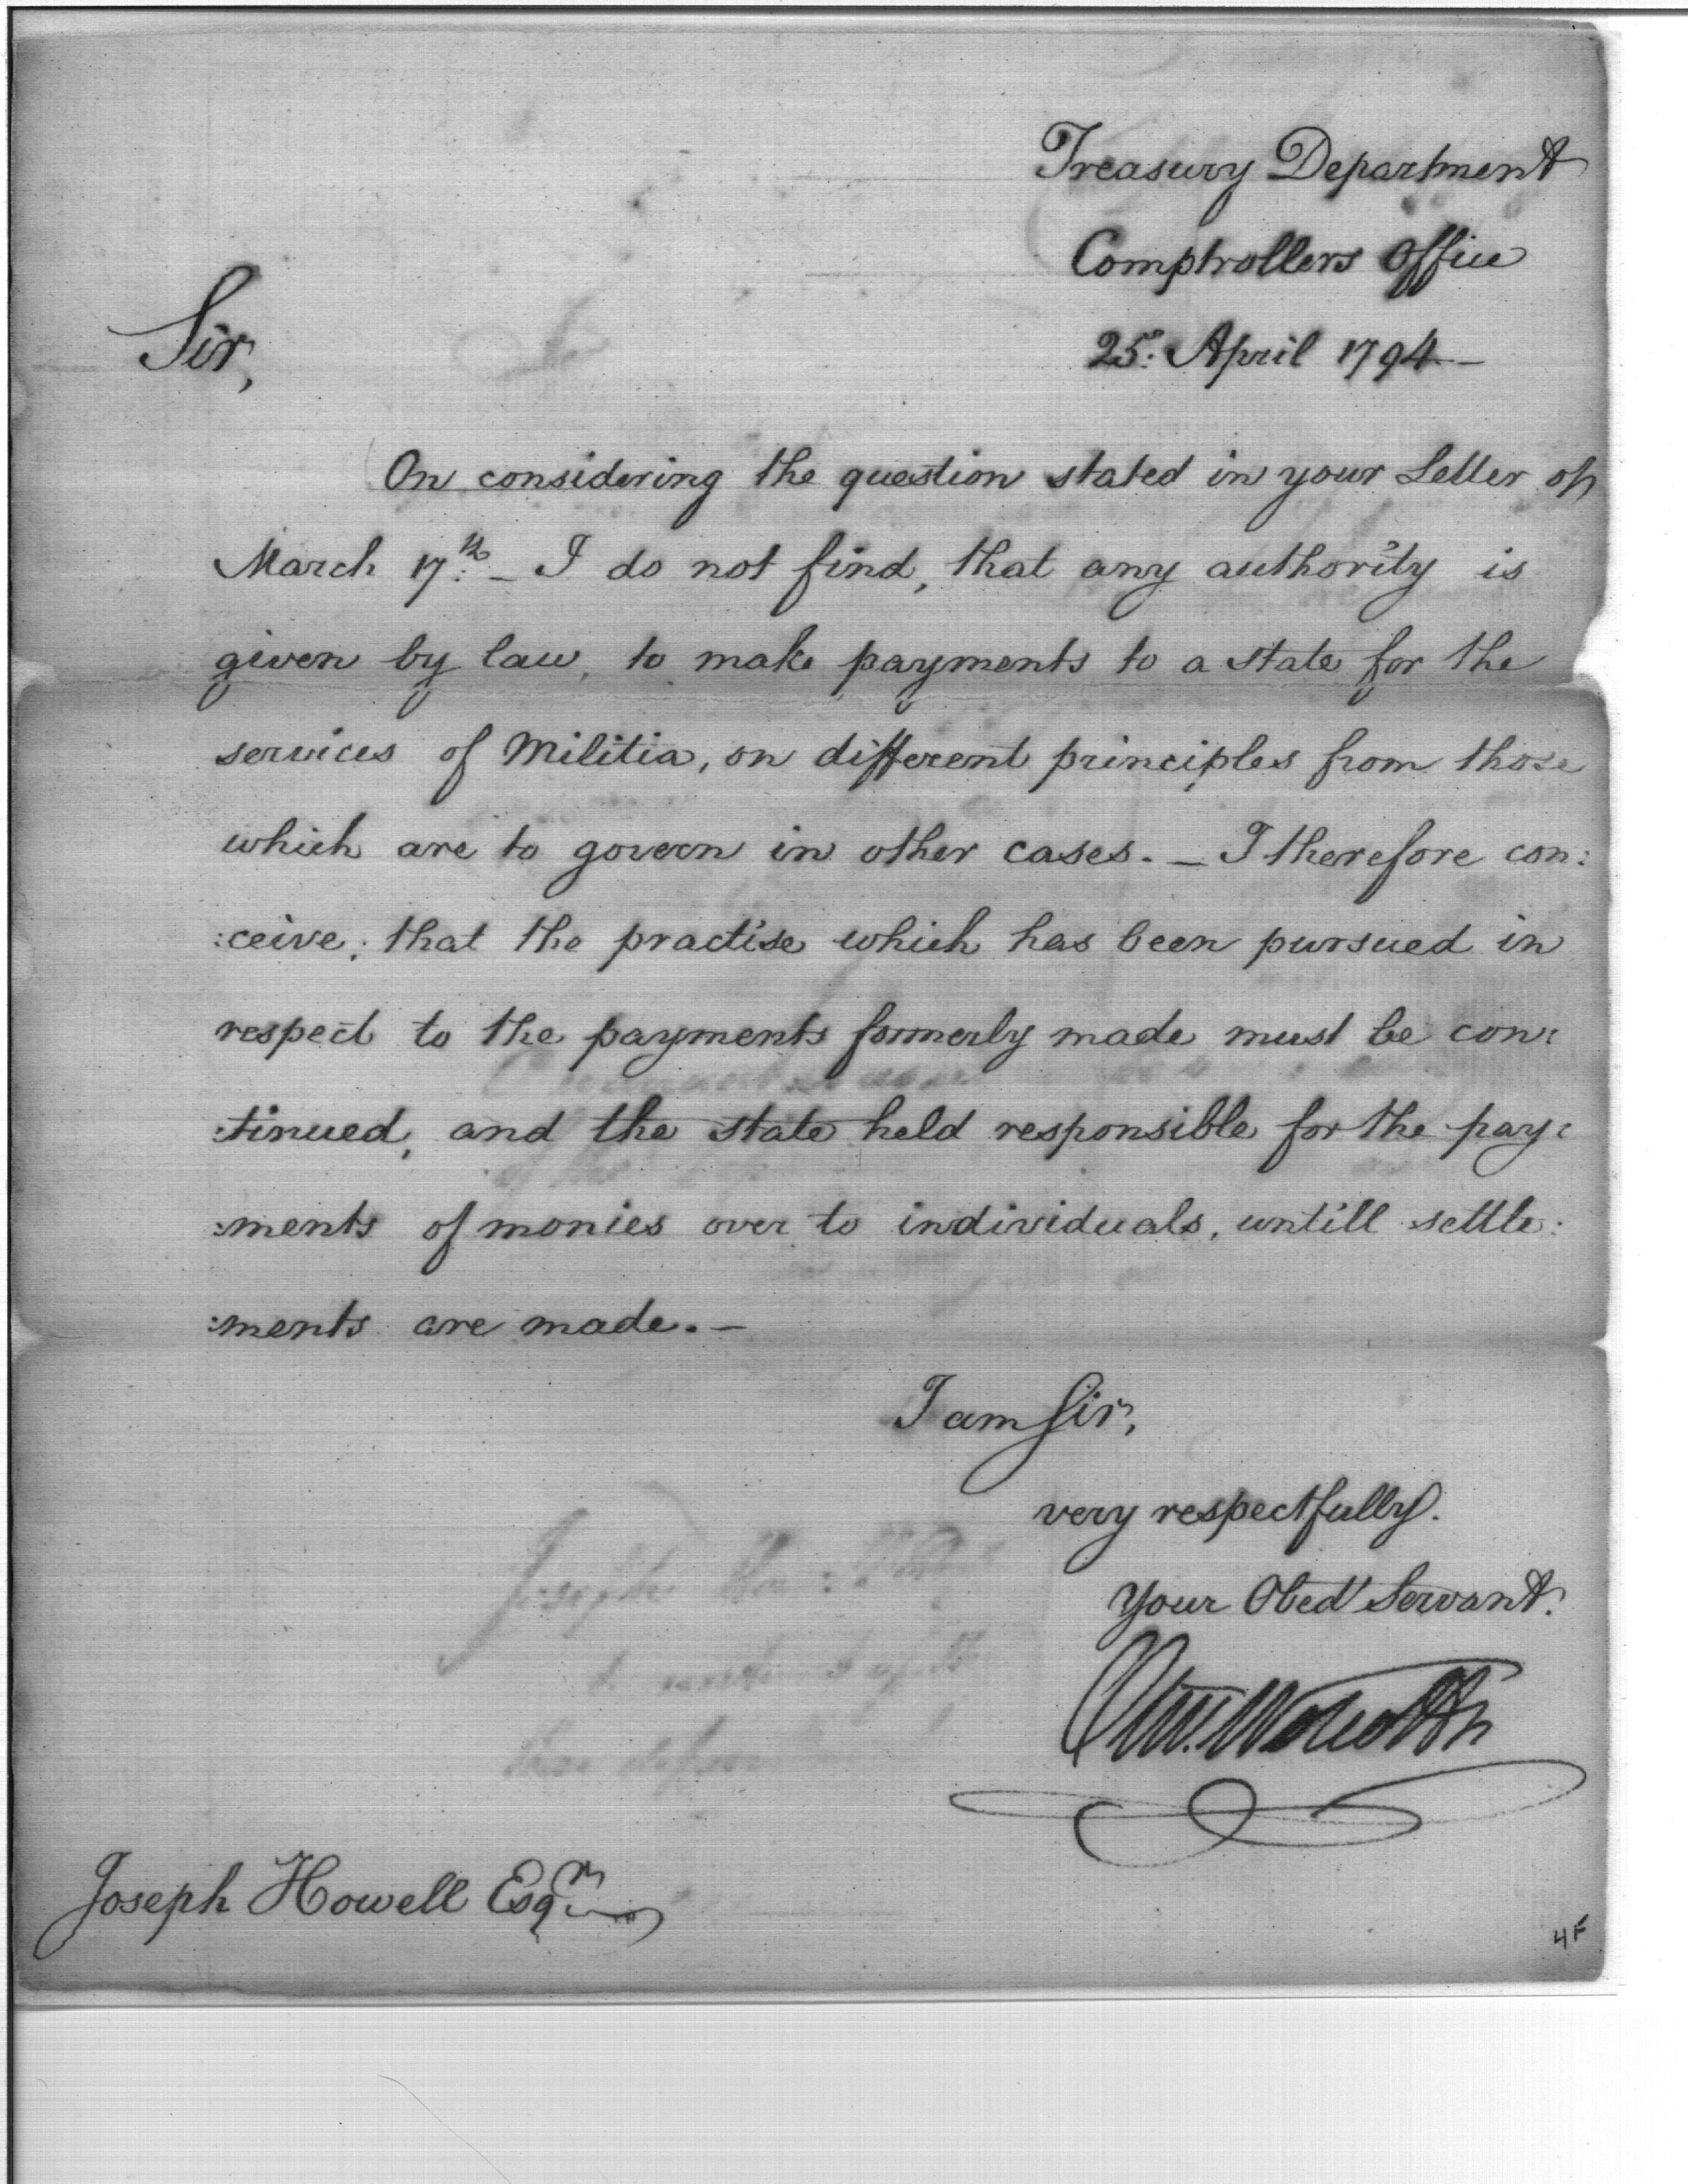 Treasury Department
Comptrollers Office
Sir,
25th. April 1794 —
On considering the question stated in your Letter of
March 17th. – I do not find, that any authority is
given by law, to make payments to a state for the
services of Militia, on different principles from those
which are to govern in other cases. – I therefore con:
:ceive, that the practise which has been pursued in
respect to the payments formerly made must be con:
:tinued, and the state held responsible for the pay:
:ments of monies over to individuals, untill settle:
:ments are made. –
I am Sir,
very respectfully.
Your Obed Servant.
Oliv. Wolcott Jr
Joseph Howell Esqr.
4F